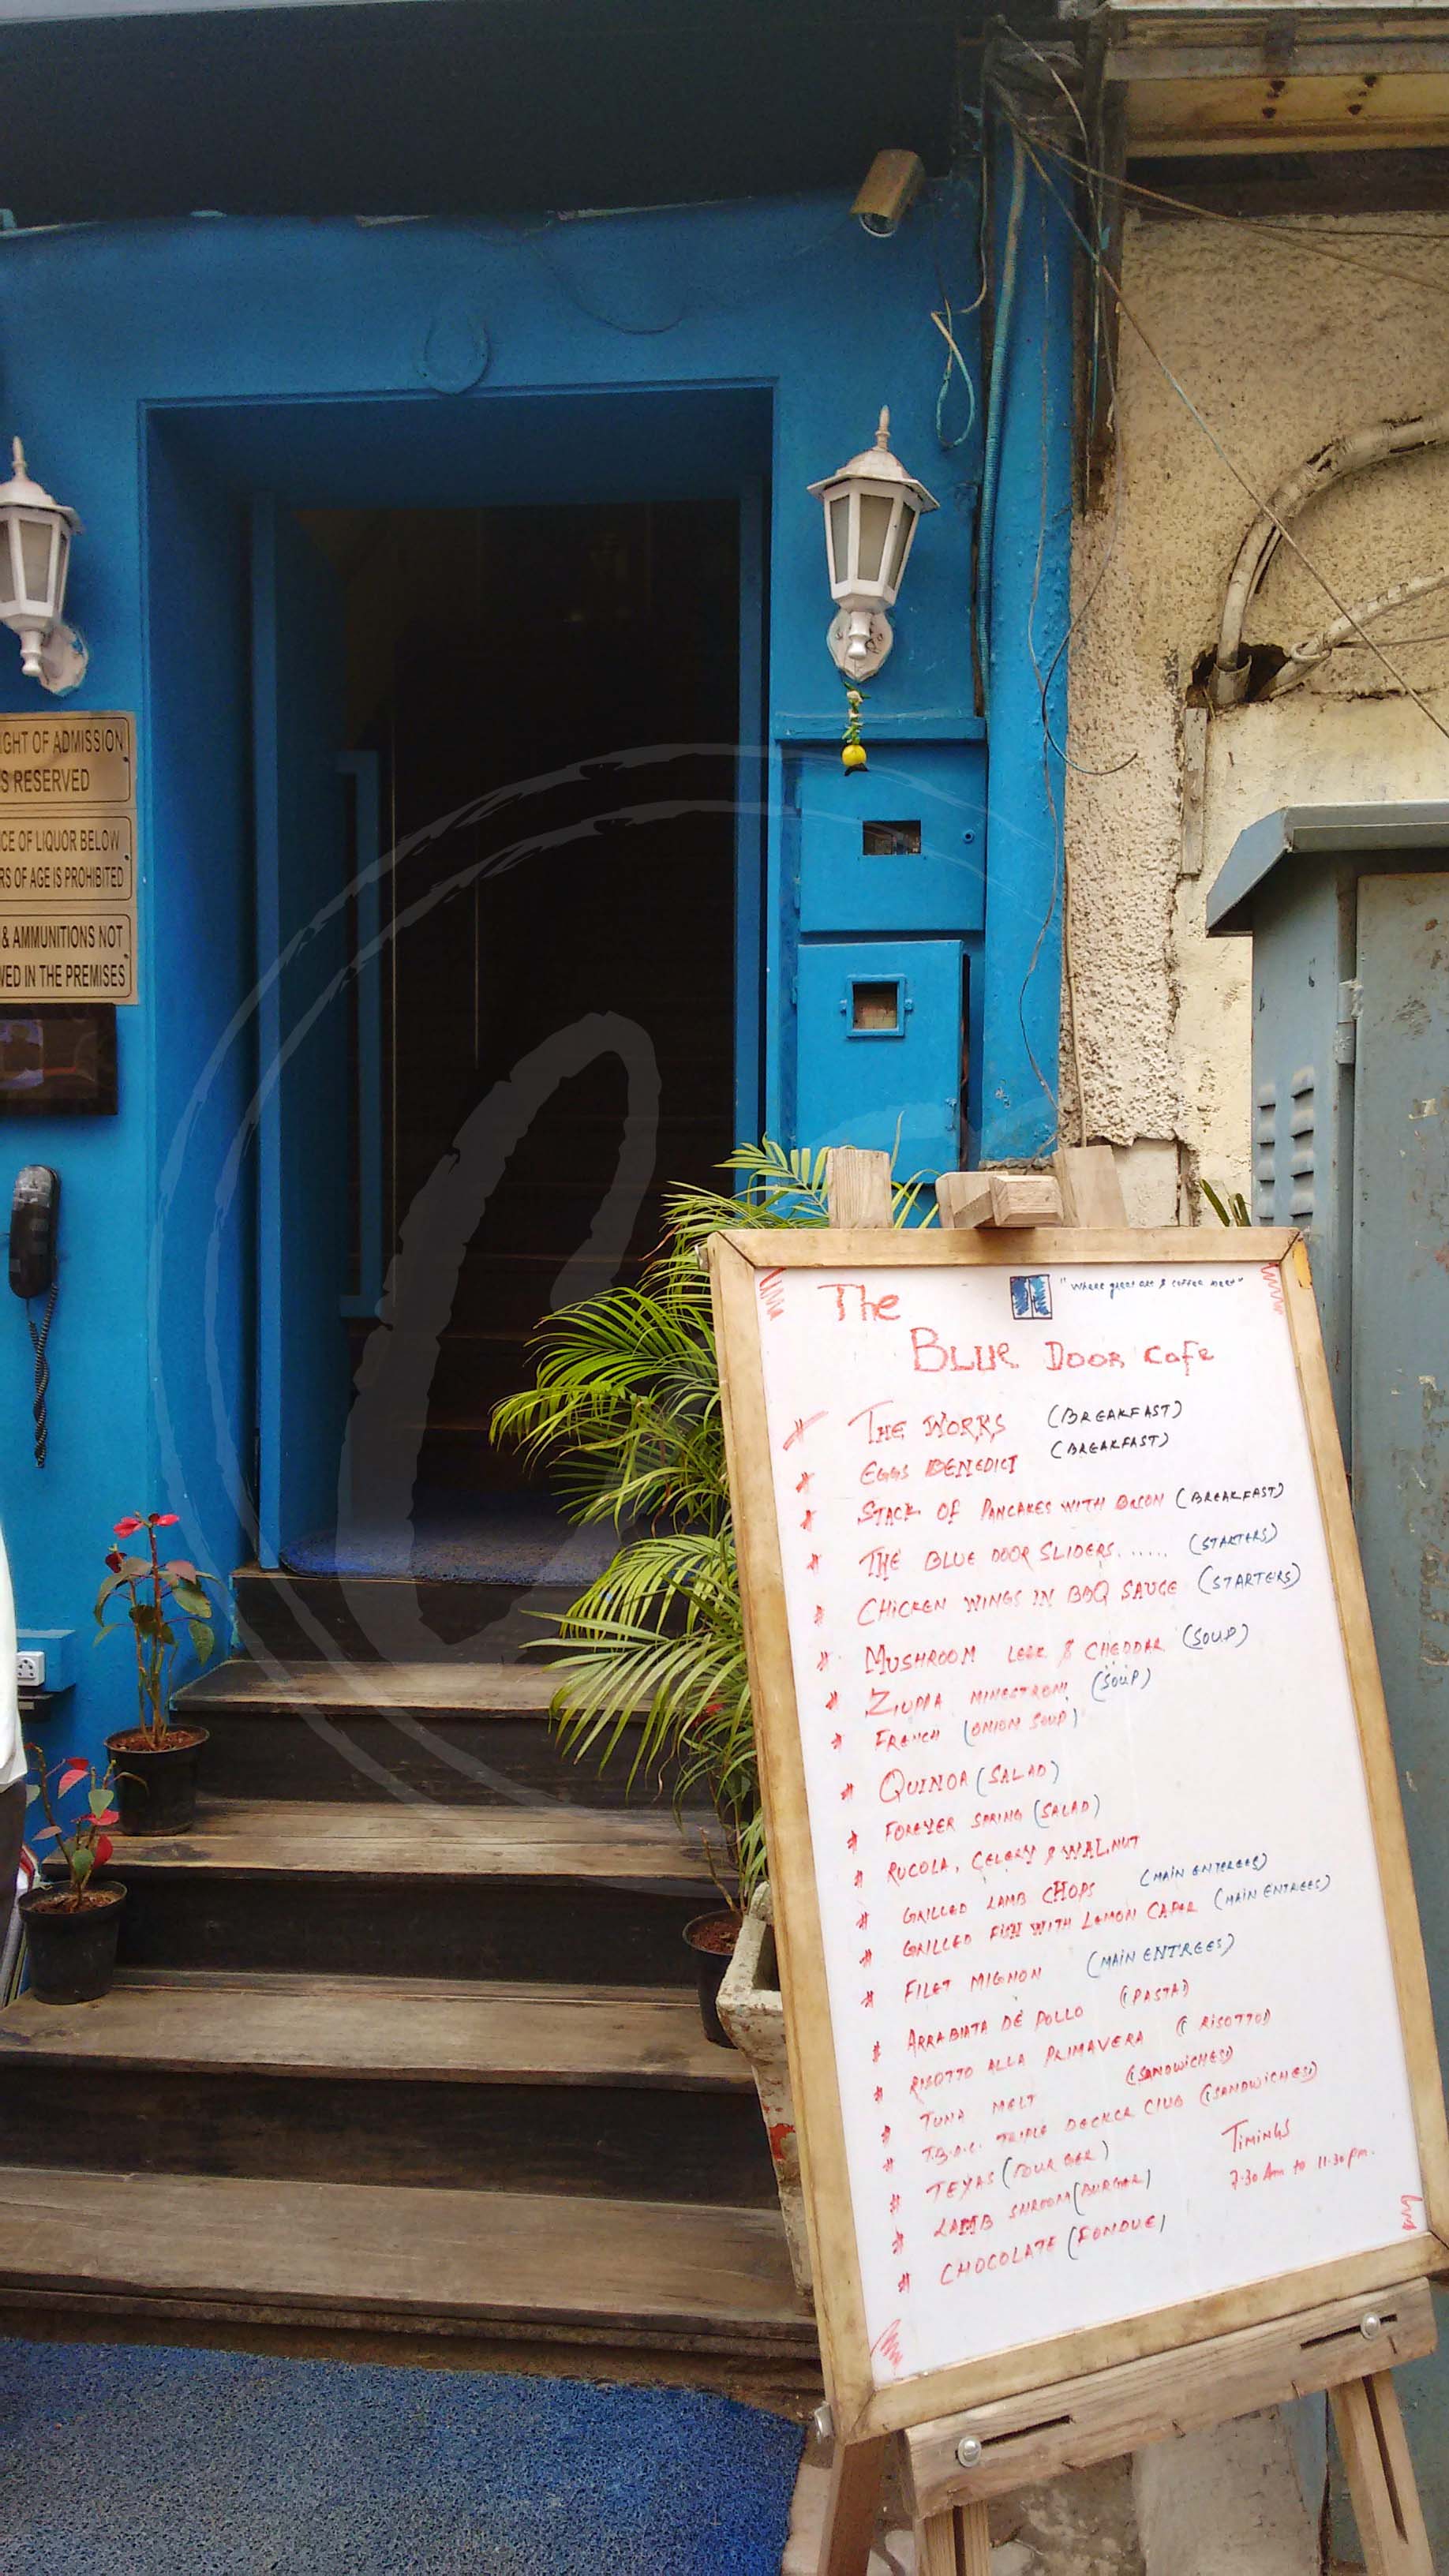 IGHT OF ADMISSION
S RESERVED
CE OF LIQUOR BELOW
RS OF AGE IS PROHIBITED
& AMMUNITIONS NOT
WED IN THE PREMISES
The
"Where great art & coffee meet"
BLUE DOOR Cafe
THE WORKS (BREAKFAST)
EGGS BENEDICT (BREAKFAST)
STACK OF PANCAKES WITH BACON (BREAKFAST)
THE BLUE DOOR SLIDERS...... (STARTERS)
CHICKEN WINGS IN BBQ SAUCE (STARTERS)
MUSHROOM LEEK & CHEDDAR (SOUP)
ZUPPA MINESTRONI (SOUP)
FRENCH (ONION SOUP)
QUINOA (SALAD)
FOREVER SPRING (SALAD)
RUCOLA, CELERY & WALNUT
GRILLED LAMB CHOPS (MAIN ENTREES)
GRILLED FISH WITH LEMON CAPER (MAIN ENTREES)
FILET MIGNON (MAIN ENTREES)
ARRABIATA DE POLLO (PASTA)
RISOTTO ALLA PRIMAVERA (RISOTTO)
TUNA MELT (SANDWICHES)
T.B.A.C. TRIPLE DECKER CLUB (SANDWICHES)
TEXAS (BURGER)
LAMB SHROOM (BURGER)
CHOCOLATE (FONDUE)
TIMINGS
7.30 Am to 11.30 pm.